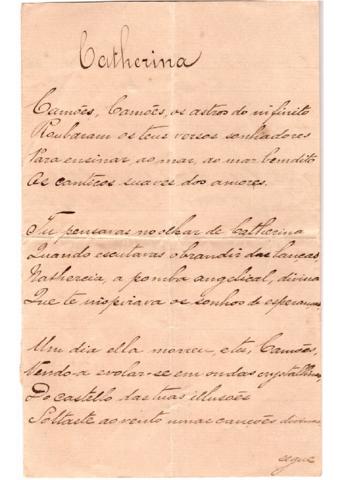 Catherina
Camões, Camões, os astros do infinito
Roubaram os teus versos sonhadores
Para ensinar, ao mar, ao mar bemdito
Os canticos suaves dos amores.
Tu pensavas no olhar de Catherina
Quando escutavas o brandir das lanças,
Nathercia, a pomba angelical, divina
Que te inspirava os sonhos de esperanças.
Um dia ella morreu, e tu, Camões,
Vendo-a evolar-se em ondas crystallinas
Do castello das tuas illusões
Soltaste ao vento umas canções divinas
segue